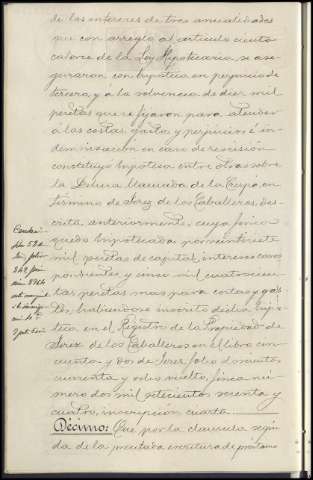 de los intereses de tres anualidades
que con arreglo al artículo ciento
catorce de la Ley Hipotecaria, se ase-
guraran con hipoteca en perjuicio de
tercero, y á la solvencia de diez mil
pesetas que se fijaron para atender
á las costas, gastos y perjuicios é in-
demnización en caso de rescisión
constituyó hipoteca entre otras sobre
la Dehesa llamada de la en
término de Jerez de los Caballeros, des-
crita anteriormente, cuya finca
quedó hipotecada por veintisiete
mil pesetas de capital, intereses corres-
pondientes y cinco mil cuatrocien-
tas pesetas mas para costas y gas-
tos, habiendose inscrito dicha hipo-
teca en el Registro de la Propiedad de
Jerez de los Caballeros en el libro cin-
cuenta y dos de Jerez, folio doscientos
cuarenta y ocho vuelto, finca nú-
mero dos mil setecientos sesenta y
cuatro, inscripción cuarta.
Décimo: Que por la clausula segun-
da de la precitada escritura de préstamo
libro 52 de
folio
248, fin-
ca 2764